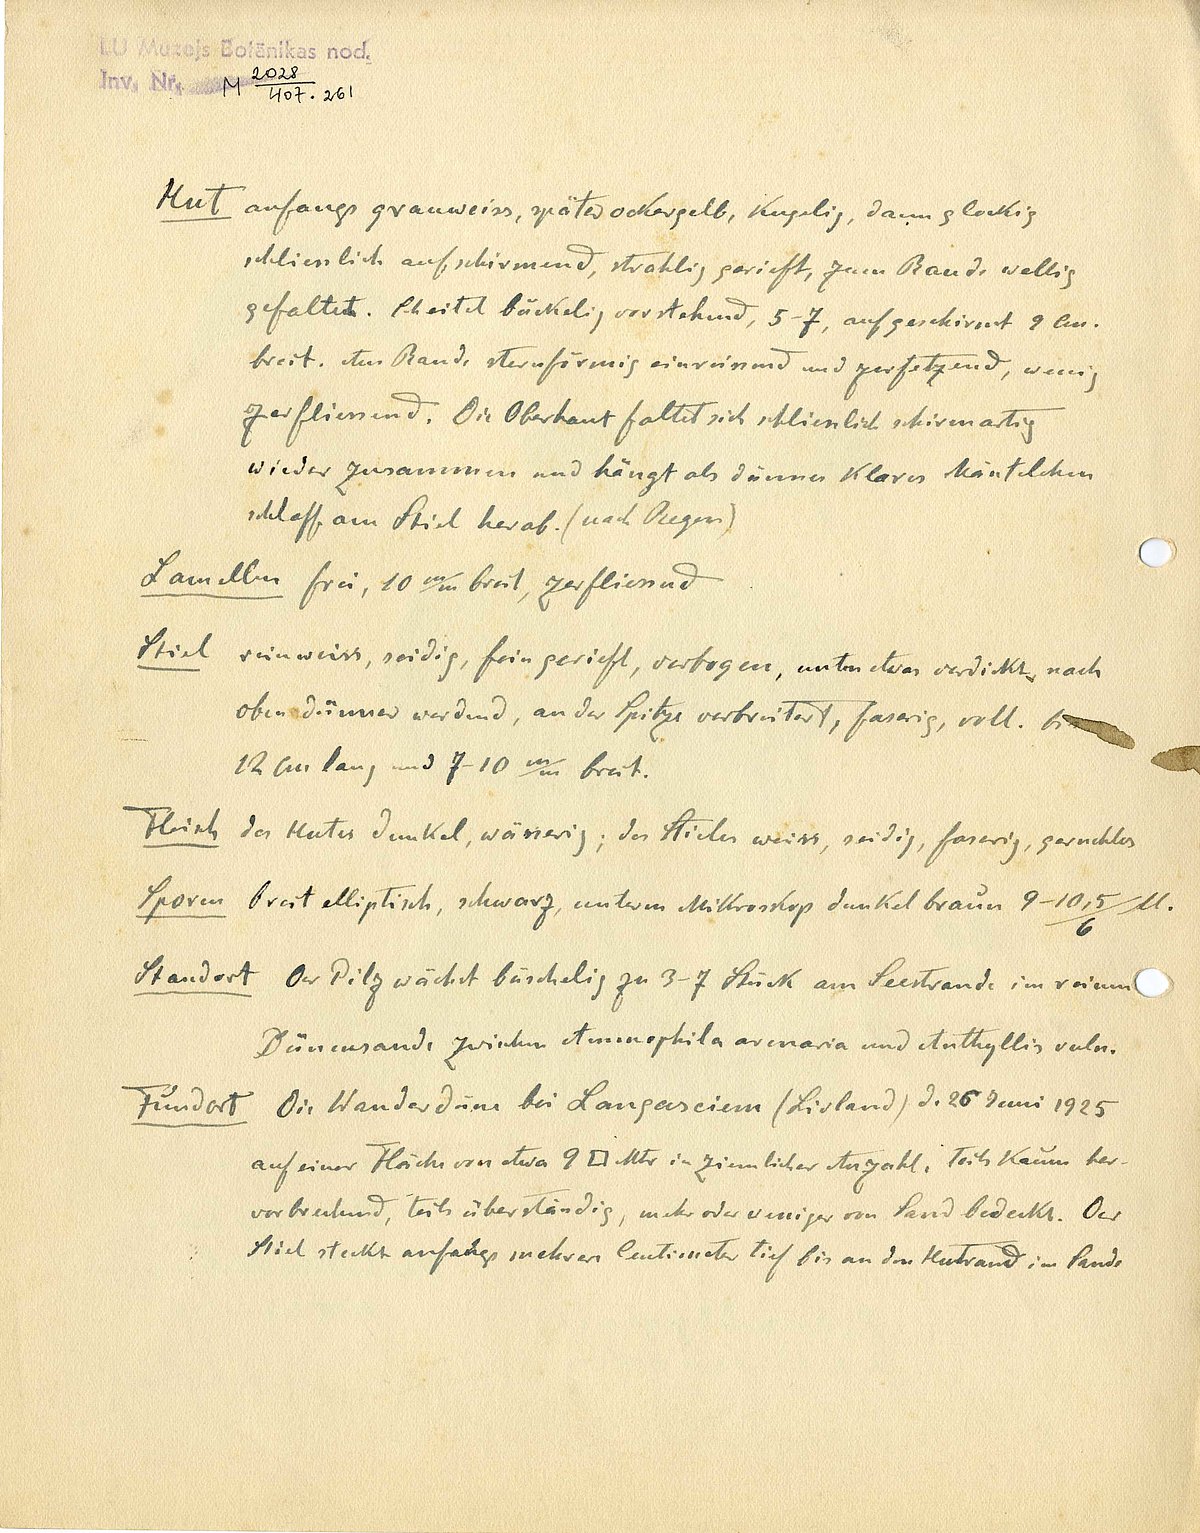 LU Muzejs Botānikas nod.
Inv. Nr. M 2028
407.261
Hut anfangs grauweiss, später ockergelb, kugelig, dann glockig
schliesslich aufschirmend, strahlig gerieft, zum Rande wellig
gefaltet. Scheitel buckelig vorstehend, 5-7, aufgeschirmt 9 cm.
breit. Am Rande sternförmig einreissend und zerfetzend, wenig
zerfliessend. Die Oberhaut faltet sich schliesslich schirmartig
wieder zusammen und hängt als dünnes klares Mäntelchen
schlaff am Stiel herab. (nach Regen)
Lamellen frei, 10 m/m breit, zerfliessend
Stiel reinweiss, seidig, fein gerieft, verbogen, unten etwas verdickt, nach
oben dünner werdend, an der Spitze verbreitert, faserig, voll. bis
12 cm lang und 7-10 m/m breit.
Fleisch des Hutes dunkel, wässerig; des Stieles weiss, seidig, faserig, geruchlos
Sporen breit elliptisch, schwarz, unterm Mikroskop dunkel braun 9-10,5/6 M.
Standort Der Pilz wächst büschelig zu 3-7 Stück am Seestrande im reinen
Dünensande zwischen Ammophila arenaria und Anthyllis vuln.
Fundort Die Wanderdüne bei Langasciem (Livland) d. 26 Juni 1925
auf einer Fläche von etwa 9 □ Mtr in ziemlicher Anzahl, teils kaum her-
vorbrechend, teils überständig, mehr oder weniger von Sand bedeckt. Der
Stiel steckt anfangs mehrere Centimeter tief bis an den Hutrand im Sande